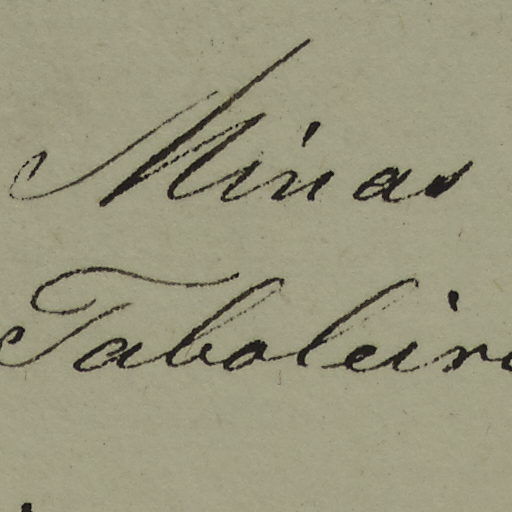 Minas
Taboleiro